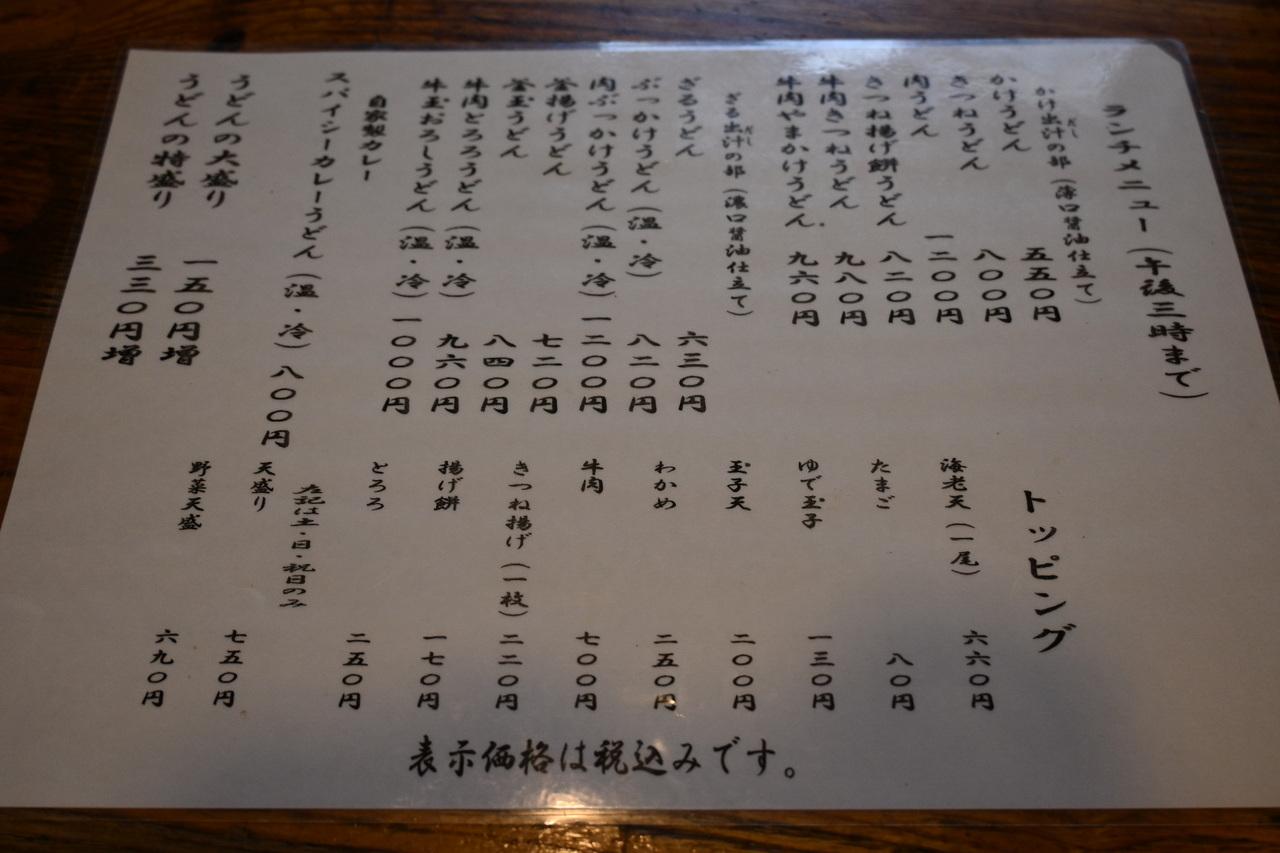 ランチメニュー（午後三時まで）
かけ出汁の部（薄口醤油仕立て）
だし
かけうどん 五五〇円
きつねうどん 八〇〇円
肉うどん 一二〇〇円
きつね揚げ餅うどん 八二〇円
牛肉きつねうどん 九八〇円
牛肉やまかけうどん 九六〇円
ざる出汁の部（濃口醤油仕立て）
だし
ざるうどん 六三〇円
ぶっかけうどん（温・冷） 八二〇円
肉ぶっかけうどん（温・冷） 一二〇〇円
釜揚げうどん 七二〇円
釜玉うどん 八四〇円
牛肉とろろうどん（温・冷） 九六〇円
牛玉おろしうどん（温・冷） 一〇〇〇円
自家製カレー
スパイシーカレーうどん（温・冷） 八〇〇円
うどんの大盛り 一五〇円増
うどんの特盛り 三三〇円増
トッピング
海老天（一尾） 六六〇円
たまご 八〇円
ゆで玉子 一三〇円
玉子天 二〇〇円
わかめ 二五〇円
牛肉 七〇〇円
きつね揚げ（一枚） 二二〇円
揚げ餅 一七〇円
とろろ 二五〇円
左記は土・日・祝日のみ
天盛り 七五〇円
野菜天盛 六九〇円
表示価格は税込みです。